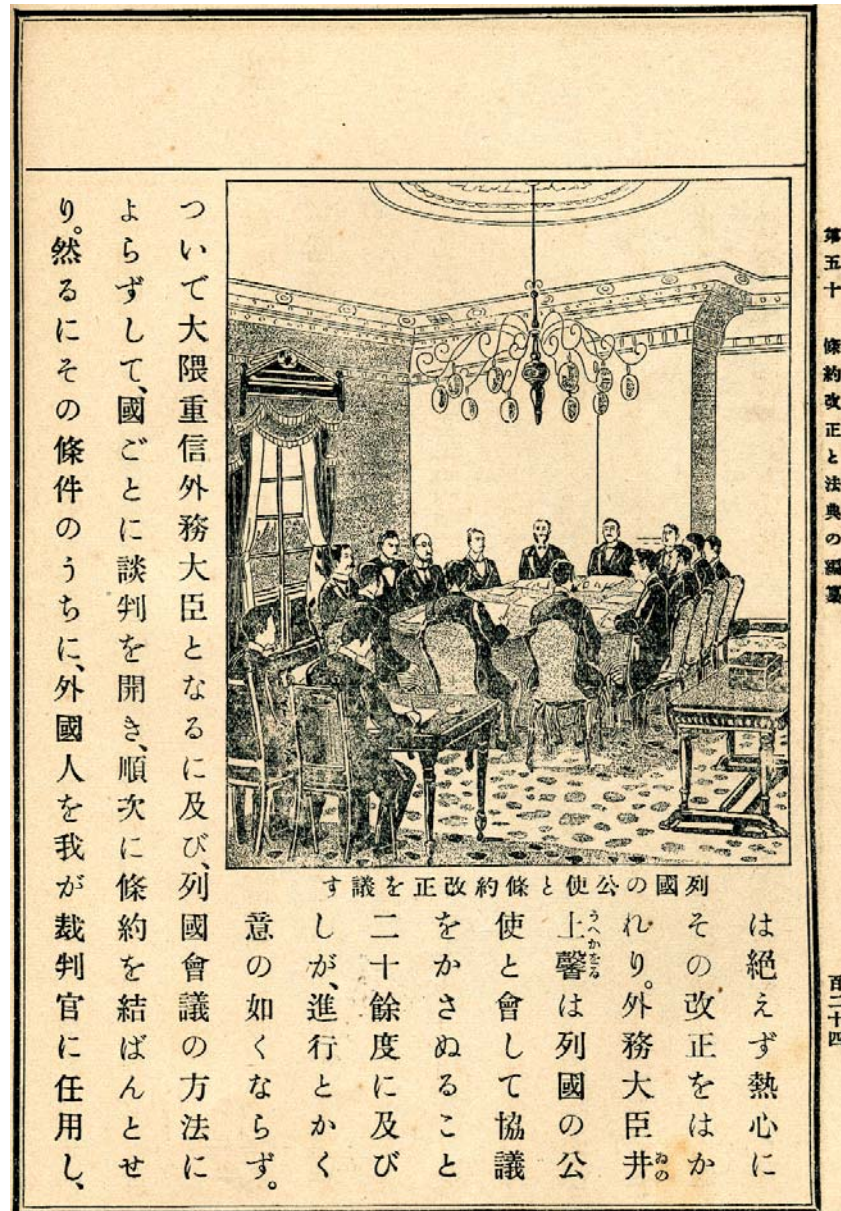 第五十　條約改正と法典の編纂
百二十四
列國の公使と條約改正を議す
は絶えず熱心に
その改正をはか
れり。外務大臣井ゐの
上うへ馨かをるは列國の公
使と會して協議
をかさぬること
二十餘度に及び
しが、進行とかく
意の如くならず。
ついで大隈重信外務大臣となるに及び、列國會議の方法に
よらずして、國ごとに談判を開き、順次に條約を結ばんとせ
り。然るにその條件のうちに、外國人を我が裁判官に任用し、